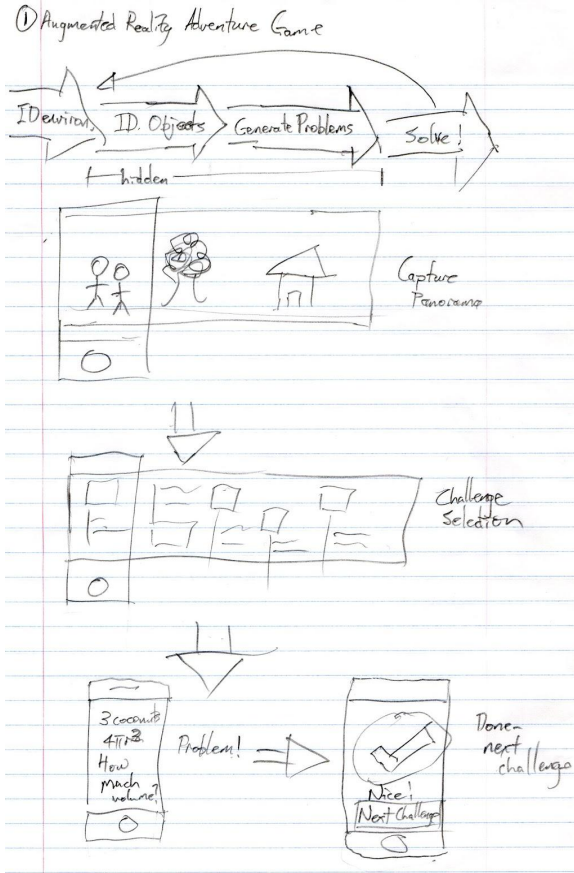 ① Augmented Reality Adventure Game
ID environ.
ID. Objects
Generate Problems
Solve!
hidden
Capture
Panorama
Challenge
Selection
3 coconuts
4πr³
How
much
volume?
Problem!
Nice!
Next Challenge
Done-
next
challenge